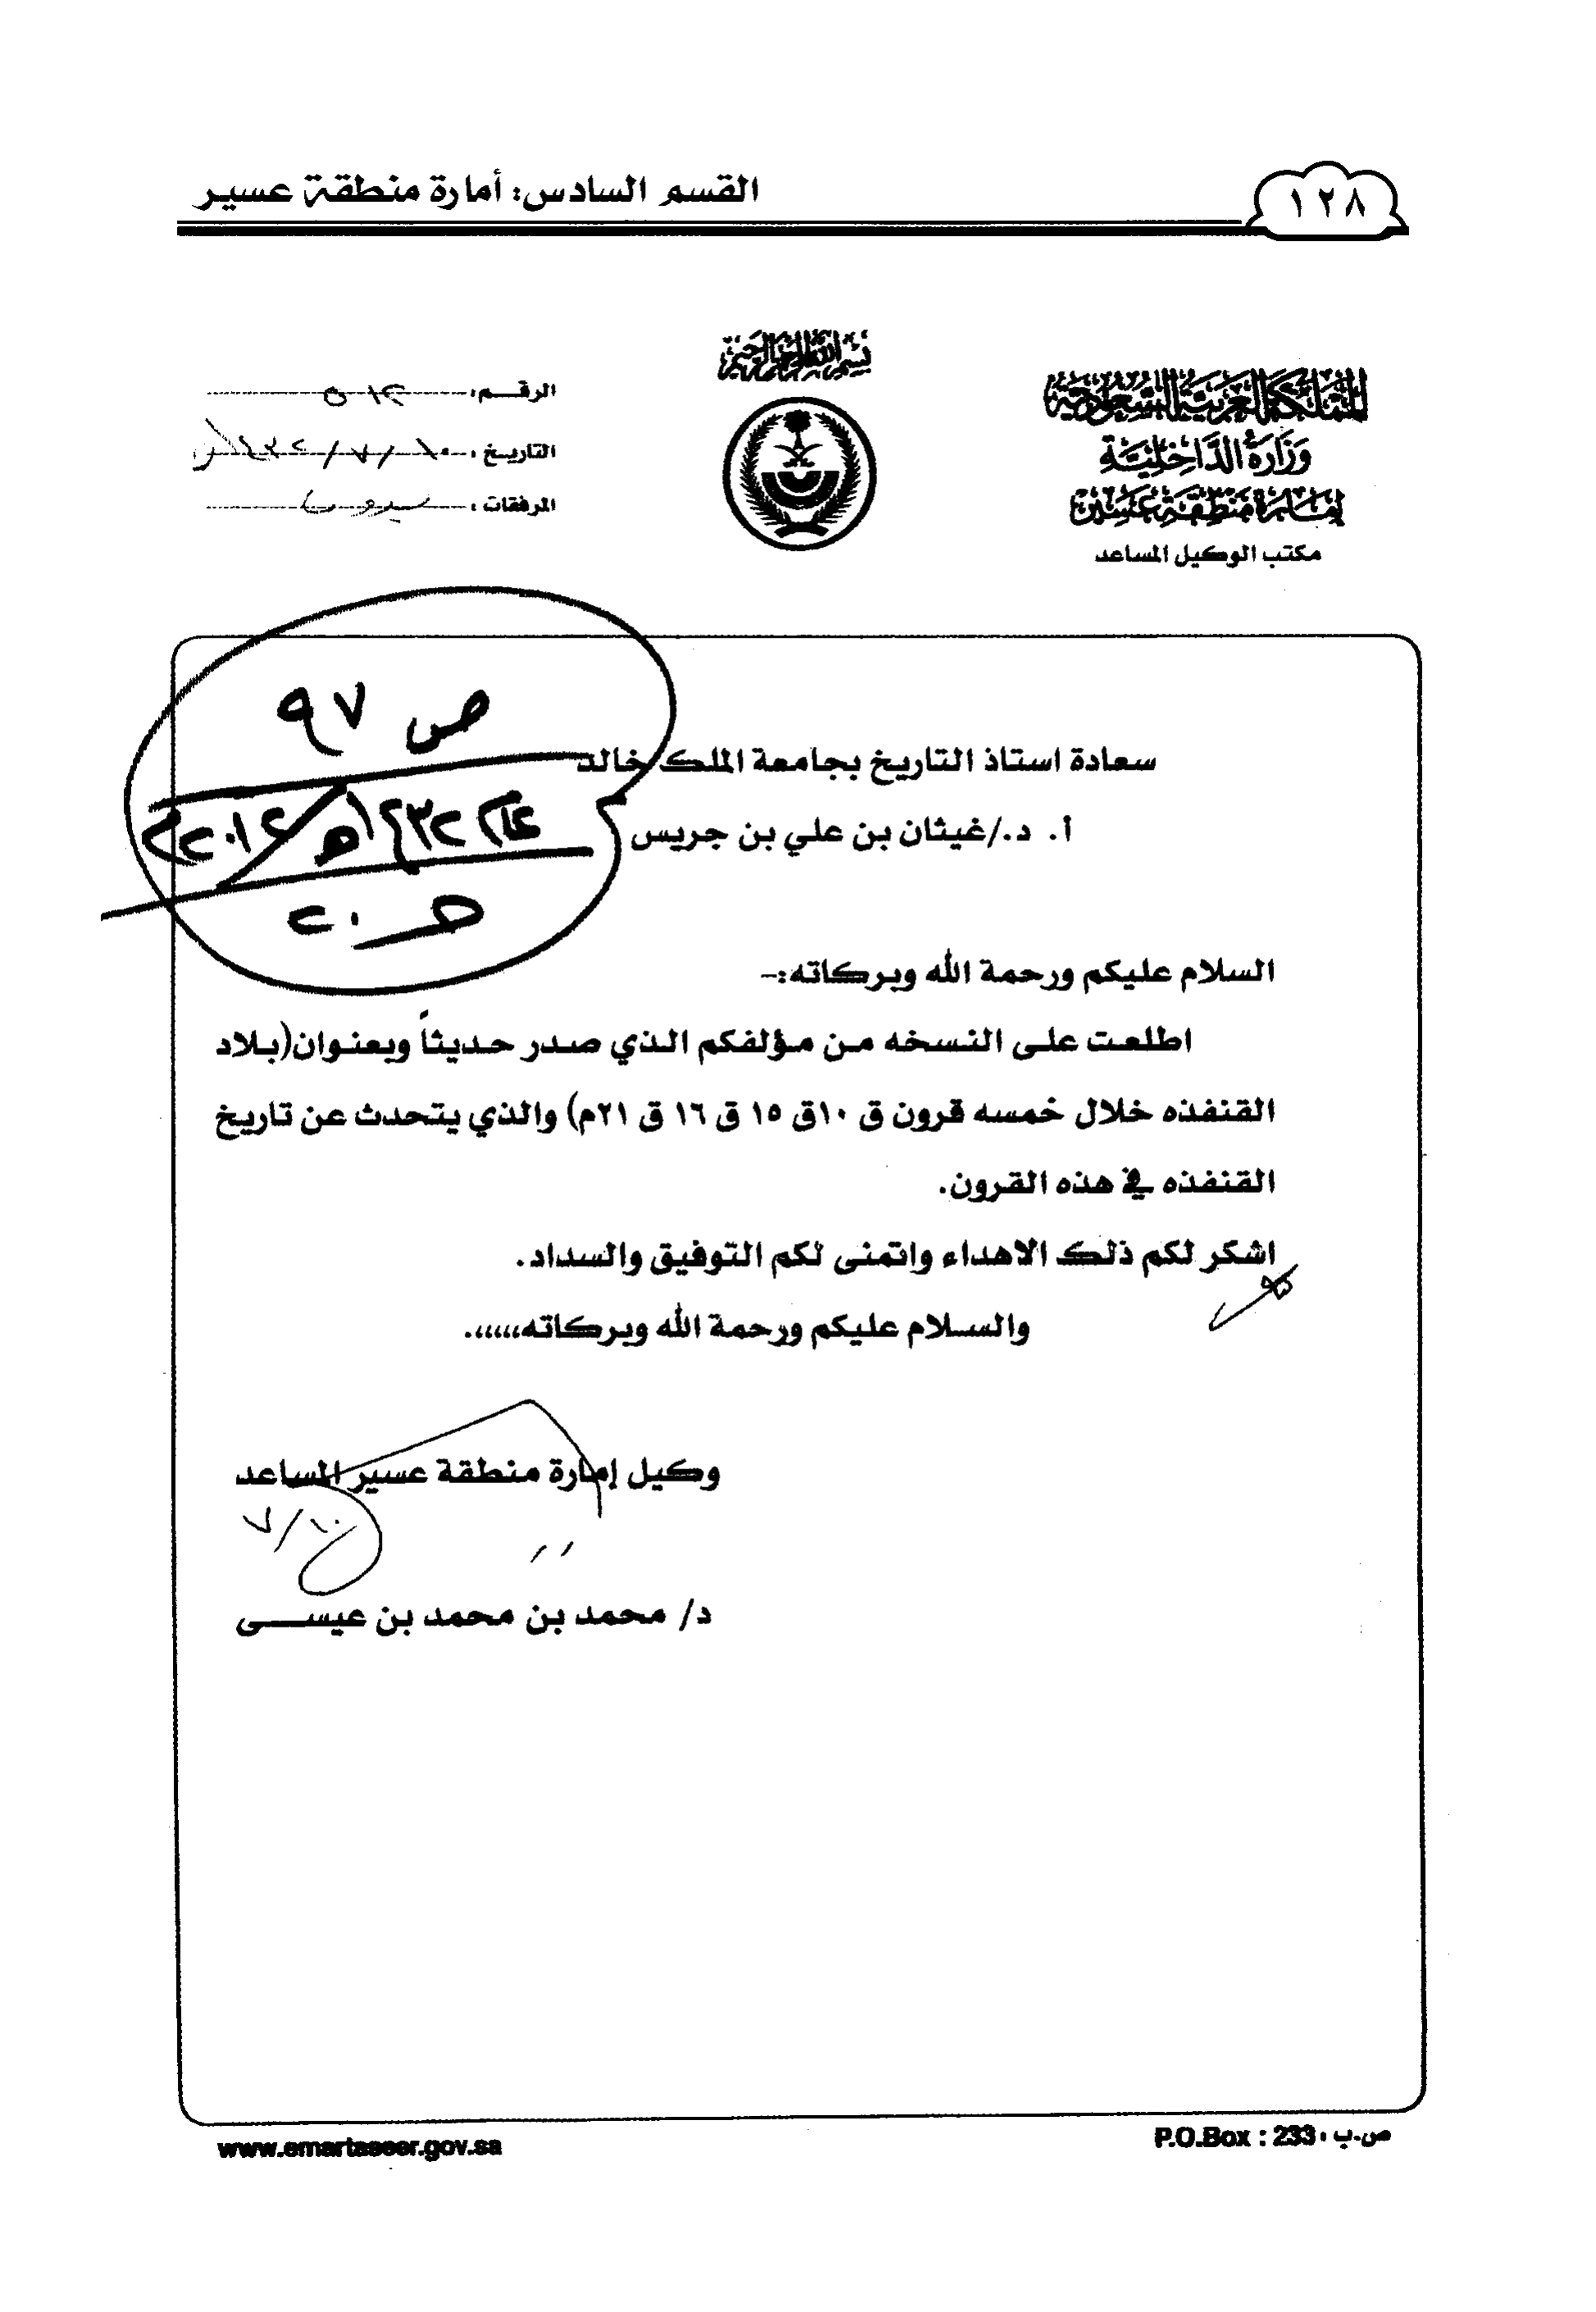 ١٢٨
القسم السادس: أمارة منطقة عسير
بسم الله الرحمن الرحيم
المملكة العربية السعودية
وزارة الداخلية
إمارة منطقة عسير
مكتب الوكيل المساعد
الرقـم:
التاريخ: ١٠ / ٧ /
المرفقات:
ص ٩٧
عام ١٤٣٢هـ / ٢٠١٢م
سعادة استاذ التاريخ بجامعة الملك خالد
أ. د./غيثان بن علي بن جريس
السلام عليكم ورحمة الله وبركاته:-
اطلعت على النسخه من مؤلفكم الذي صدر حديثاً وبعنوان(بلاد
القنفذه خلال خمسه قرون ق ١٠ق ١٥ ق ١٦ ق ٢١م) والذي يتحدث عن تاريخ
القنفذه في هذه القرون.
اشكر لكم ذلك الاهداء واتمنى لكم التوفيق والسداد.
والسلام عليكم ورحمة الله وبركاته،،،،،،.
وكيل إمارة منطقة عسير المساعد
٧/١٠
د/ محمد بن محمد بن عيسى
www.emartaseer.gov.sa
ص.ب: P.O.Box : 233